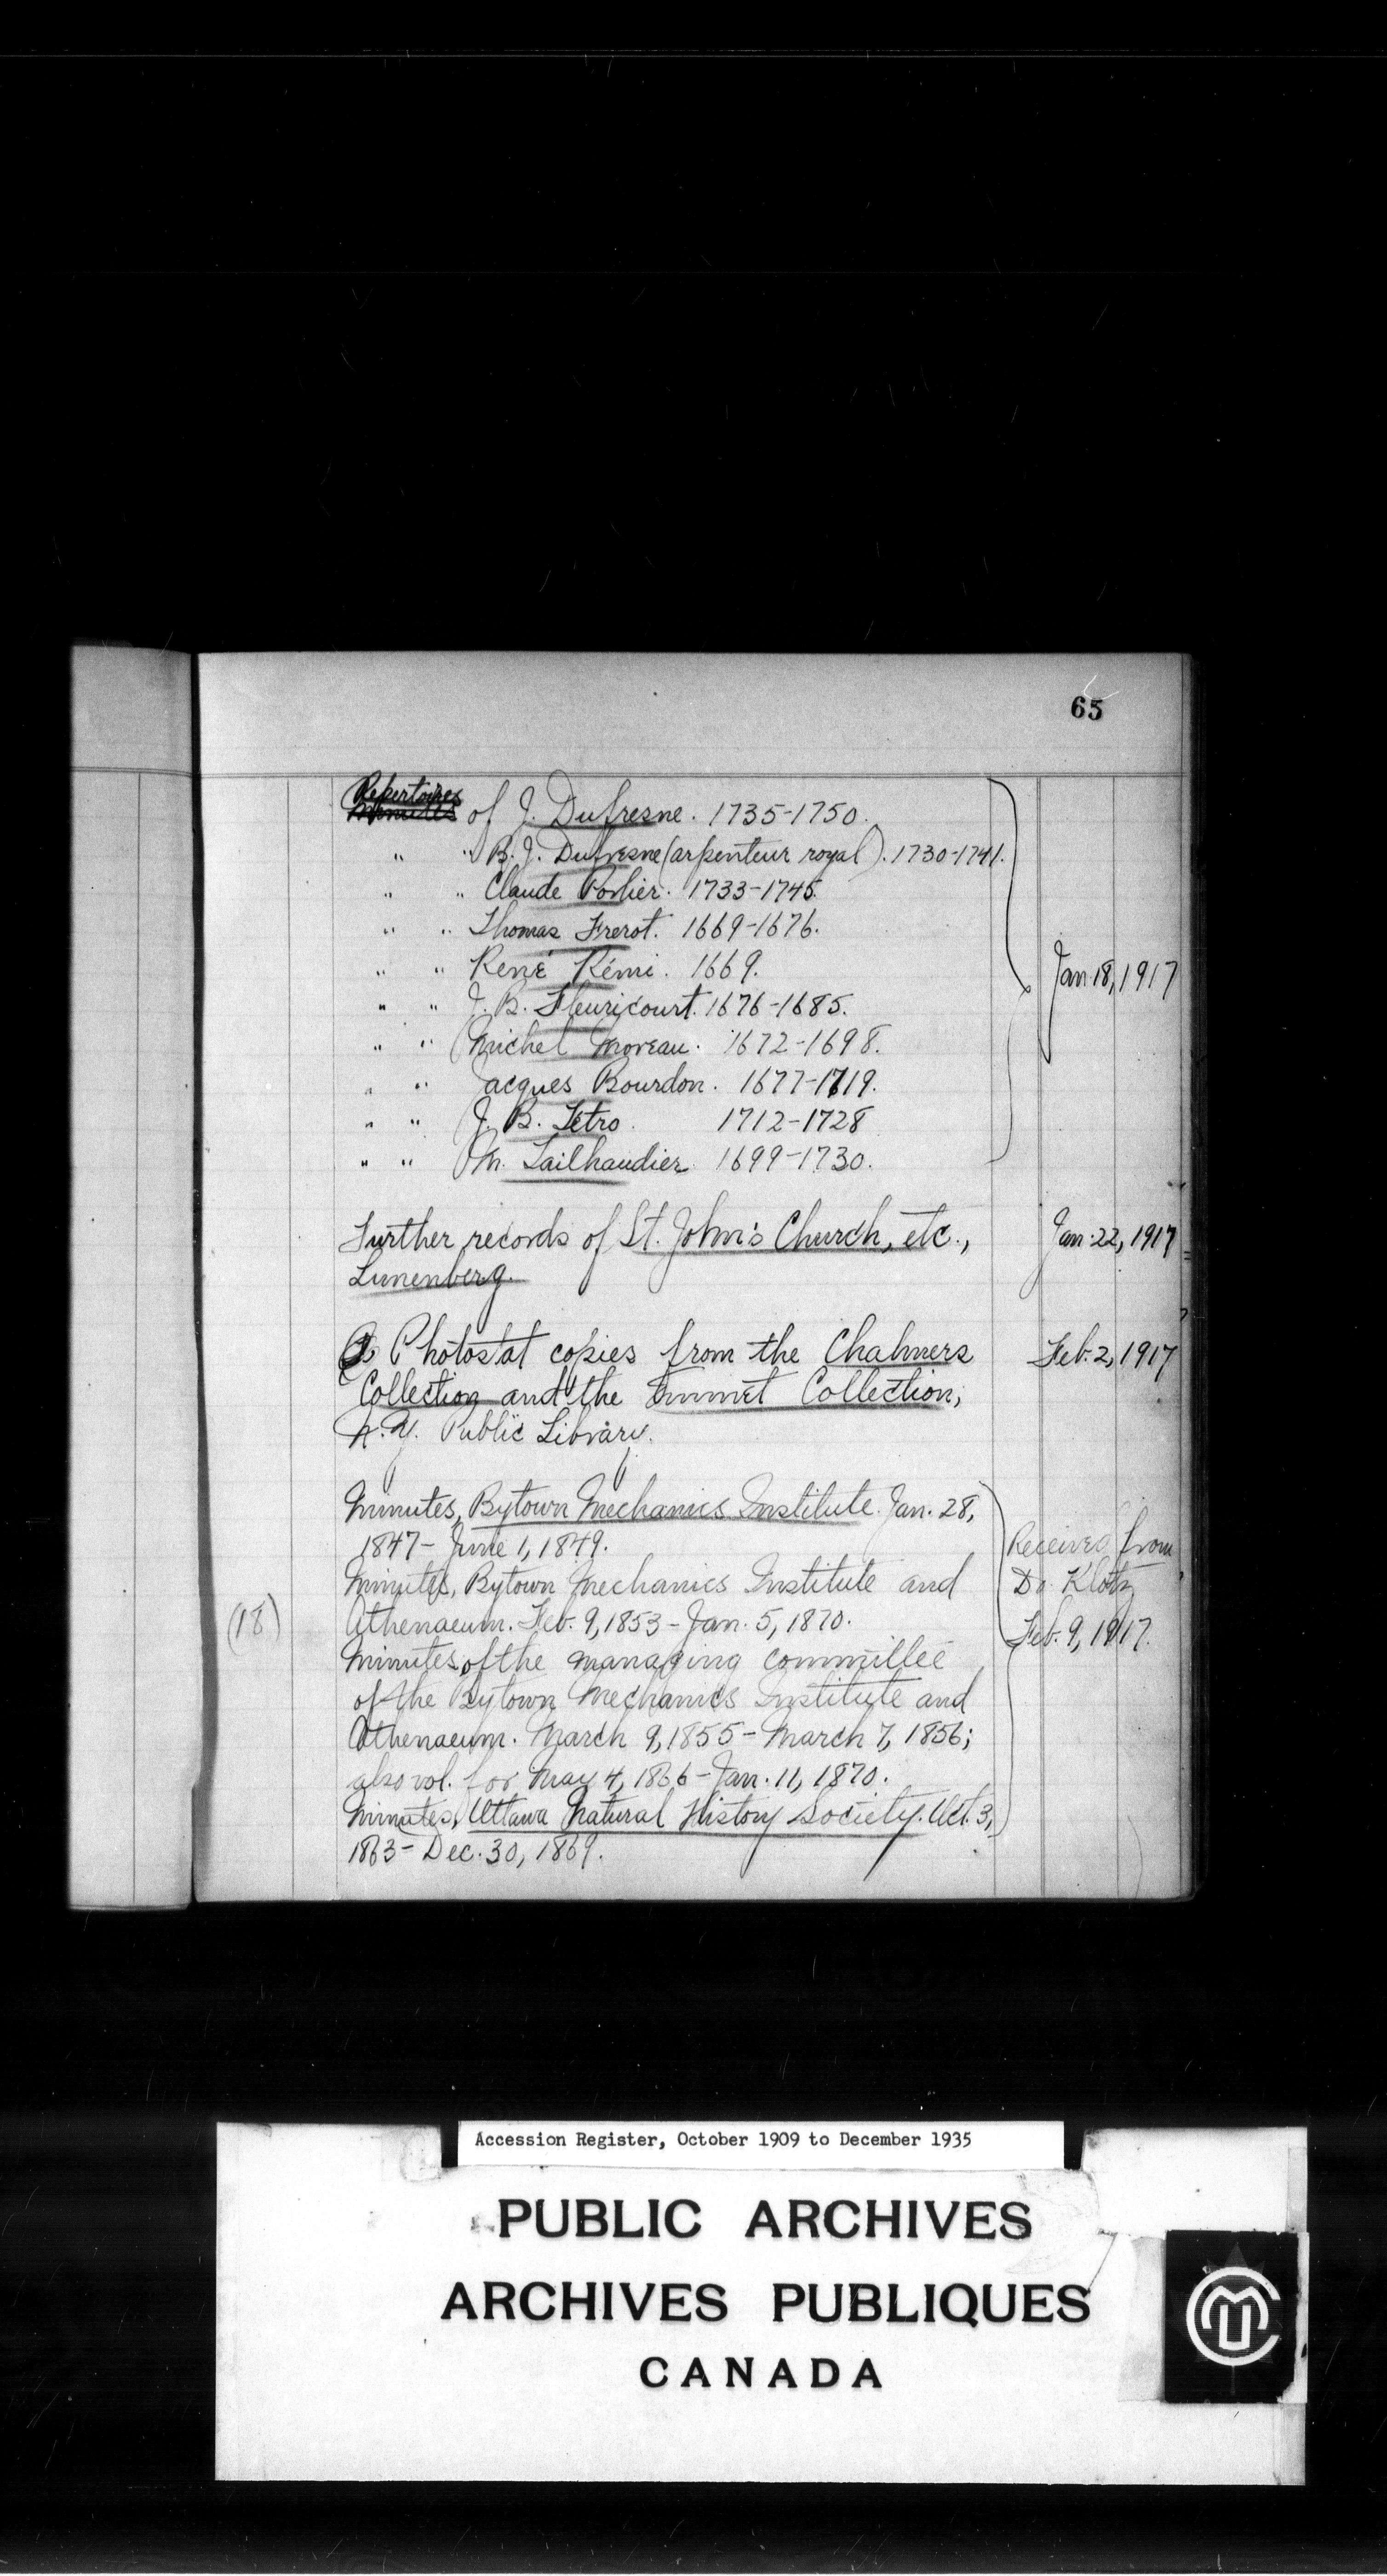 65
Repertoires
Minutes of J. Dufresne. 1735-1750.
" " B. J. Dufresne (arpenteur royal). 1730-1741.
" " Claude Porlier. 1733-1745.
" " Thomas Frerot. 1669-1676.
" " René Rémi. 1669.
" " J. B. Fleuricourt. 1676-1685.
Jan. 18, 1917
" " Michel Moreau. 1672-1698.
" " Jacques Bourdon. 1677-1719.
" " J. B. Tetro. 1712-1728
" " M. Tailhandier 1699-1730.
Further records of St. John's Church, etc., Jan. 22, 1917
Lunenberg.
Photostat copies from the Chalmers Feb. 2, 1917
Collection and the Emmet Collection,
N.Y. Public Library.
Minutes, Bytown Mechanics Institute. Jan. 28,
1847- June 1, 1849.
Received from
Minutes, Bytown Mechanics Institute and Dr. Klotz
(18) Athenaeum. Feb. 9, 1853 - Jan. 5, 1870. Feb. 9, 1917.
Minutes of the managing committee
of the Bytown Mechanics Institute and
Athenaeum. March 9, 1855 - March 7, 1856;
also vol. for May 4, 1866 - Jan. 11, 1870.
Minutes, Ottawa Natural History Society. Oct. 3,
1863- Dec. 30, 1869.
Accession Register, October 1909 to December 1935
PUBLIC ARCHIVES
ARCHIVES PUBLIQUES
CANADA